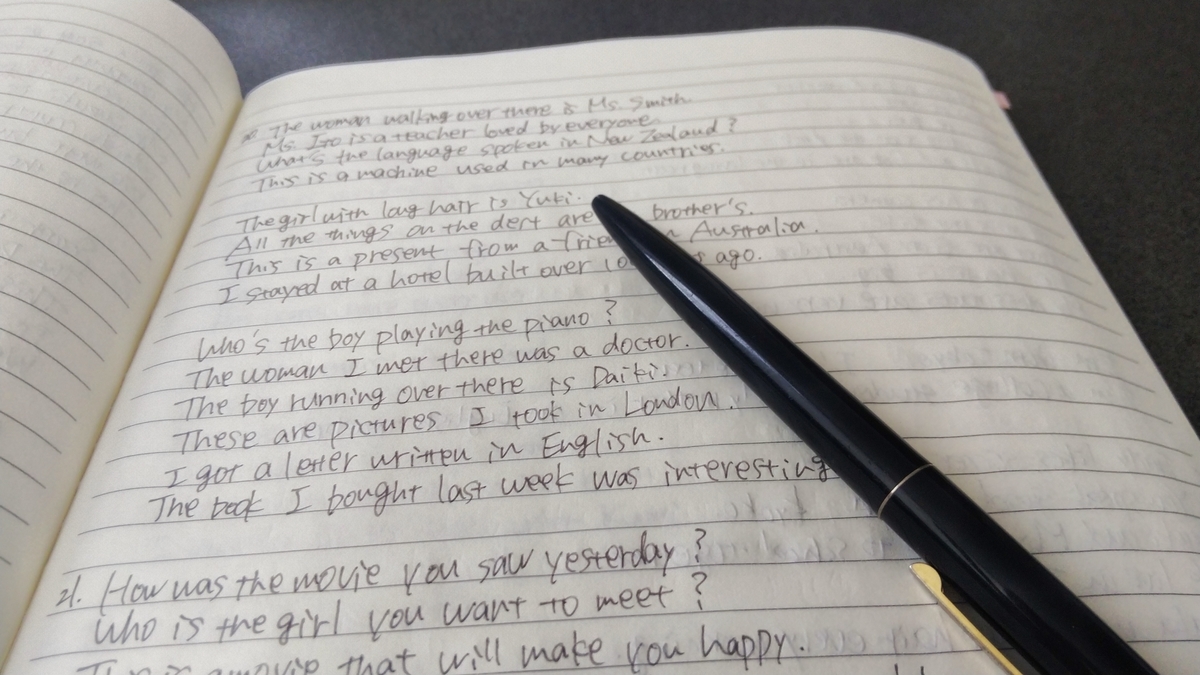 20 The woman walking over there is Ms. Smith.
Ms. Ito is a teacher loved by everyone.
What's the language spoken in New Zealand?
This is a machine used in many countries.
The girl with long hair is Yuki.
All the things on the dert are brother's.
This is a present from a Australia.
I stayed at a hotel built over ago.
Who's the boy playing the piano?
The woman I met there was a doctor.
The boy running over there is Daiki.
These are pictures I took in London.
I got a letter written in English.
The book I bought last week was interesting
21. How was the movie you saw yesterday?
Who is the girl you want to meet?
This is a movie that will make you happy.